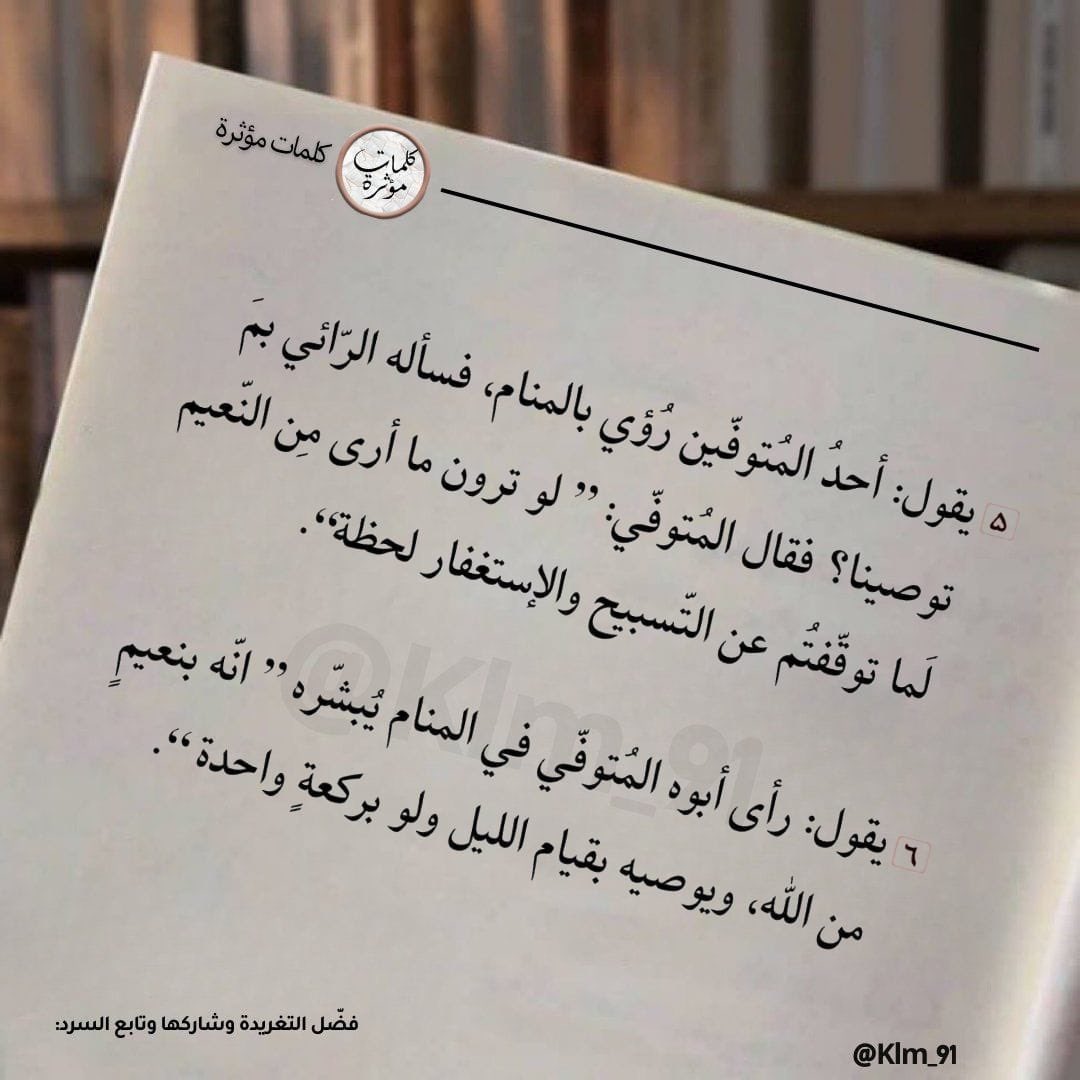 كلمات مؤثرة
كلمات
مؤثرة
٥ يقول: أحدُ المُتوفّين رُؤي بالمنام، فسأله الرّائي بمَ
توصينا؟ فقال المُتوفّي: ” لو ترون ما أرى مِن النّعيم
لَما توقّفتُم عن التّسبيح والإستغفار لحظة“.
٦ يقول: رأى أبوه المُتوفّي في المنام يُبشّره ” انّه بنعيمٍ
من الله، ويوصيه بقيام الليل ولو بركعةٍ واحدة“.
@Klm_91
فضّل التغريدة وشاركها وتابع السرد:
@Klm_91